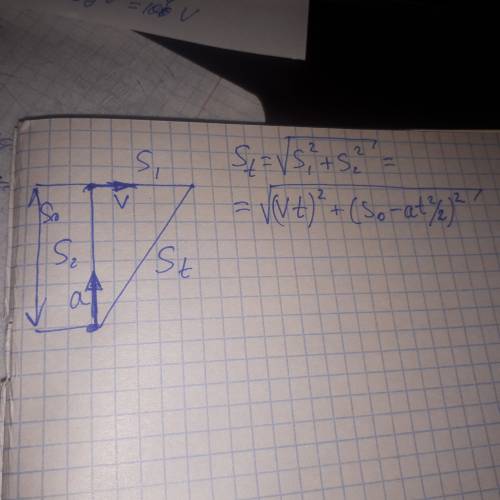 S₁
V
S₀
S₂
a
Sₜ
Sₜ = √(S₁² + S₂²) =
= √((Vt)² + (S₀ - at²/2)²)